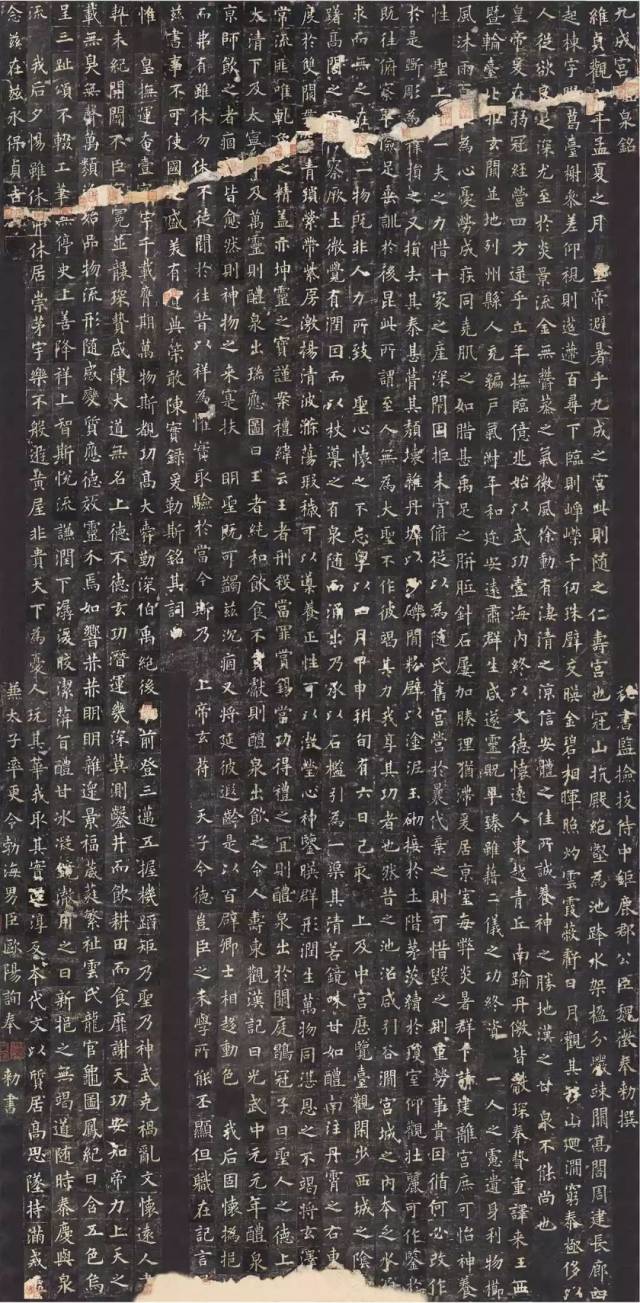 九成宮泉銘 秘書監撿挍侍中鉅鹿郡公臣魏徵奉勑撰
維貞觀年孟夏之月 皇帝避暑乎九成之宮此則隨之仁壽宮也冠山抗殿絶壑為池跨水架楹分巖竦闕高閣周建長廊四
起棟宇膠葛臺榭參差仰視則迢遰百尋下臨則崢嶸千仞珠璧交暎金碧相暉照灼雲霞蔽虧日月觀其移山迴澗窮泰極侈以
人從欲良足深尤至於炎景流金無欝蒸之氣微風徐動有淒清之涼信安體之佳所誠養神之勝地漢之甘泉不能尚也
皇帝爰在弱冠經營四方逮乎立年撫臨億兆始以武功壹海內終以文德懷遠人東越青丘南踰丹儌皆獻琛奉贄重譯來王西
暨輪臺北拒玄闕並地列州縣人充編戶氣淑年和迩安遠肅群生咸遂靈貺畢臻雖藉二儀之功終資一人之慮遺身利物櫛
風沐雨為心憂勞成疾同堯肌之如腊甚禹足之胼胝針石屢加腠理猶滯爰居京室每弊炎暑群下請建離宮庶可怡神養
性 聖上一夫之力惜十家之產深閉固拒未肯俯從以為隨氏舊宮營於曩代棄之則可惜毀之則重勞事貴因循何必改作
於是斵彫為樸損之又損去其泰甚葺其頹壞雜丹墀以沙礫間粉壁以塗泥玉砌接於土階茅茨續於瓊室仰觀壯麗可作鑒於
既往俯察卑儉足垂訓於後昆此所謂至人無為大聖不作彼竭其力我享其功者也然昔之池沼咸引谷澗宮城之內本乏水源
求而無之在一物既非人力所致 聖心懷之不忘粵以四月甲申朔旬有六日己亥 上及中宮歷覽臺觀閑步西城之陰
躊躇高閣之下俯察厥土微覺有潤因而以杖導之有泉隨而涌出乃承以石檻引為一渠其清若鏡味甘如醴南注丹霄之右東
度於雙闕青瑣縈帶紫房激揚清波滌蕩瑕穢可以導養正性可以澂瑩心神鑒暎群形潤生萬物同湛恩之不竭將玄澤
常流匪唯乾象之精盖亦坤靈之寶謹案禮緯云王者刑殺當罪賞錫當功得禮之宜則醴泉出於闕庭鶡冠子曰聖人之德上
太清下及太寧中及萬靈則醴泉出瑞應圖曰王者純和飲食不貢獻則醴泉出飲之令人壽東觀漢記曰光武中元元年醴泉
京師飲之者痼疾皆愈然則神物之来寔扶 明聖既可蠲兹沉痼又將延彼遐齡是以百辟卿士相趨動色 我后固懷撝挹
而弗有雖休勿休不徒聞於往昔以祥為懼實取驗於當今斯乃 上帝玄符 天子令德豈臣之末學所能丕顯但職在記言
兹書事不可使國之盛美有遺典策敢陳實錄爰勒斯銘其詞曰
惟 皇撫運奄壹寰宇千載膺期萬物斯覩功高大舜勤深伯禹絕後前登三邁五握機蹈矩乃聖乃神武克禍亂文懷遠人書
契未紀開闢不臣冠冕並襲琛贄咸陳大道無名上德不德玄功潛運幾深莫測鑿井而飲耕田而食靡謝天功安知帝力上天之
載無臭無聲萬類資始品物流形隨感變質應德效靈介焉如響赫赫明明雜遝景福葳蕤繁祉雲氏龍官龜圖鳳紀日含五色烏
呈三趾頌不輟工筆無停史上善降祥上智斯悅流謙潤下潺湲皎潔蓱旨醴甘冰凝鏡澈用之日新挹之無竭道隨時泰慶與泉
流 我后夕惕雖休弗休居崇茅宇樂不般遊黃屋非貴天下為憂人玩其華我取其實還淳反本代文以質居高思墜持滿戒溢
念兹在兹永保貞吉 兼太子率更令勃海男臣歐陽詢奉 勑書